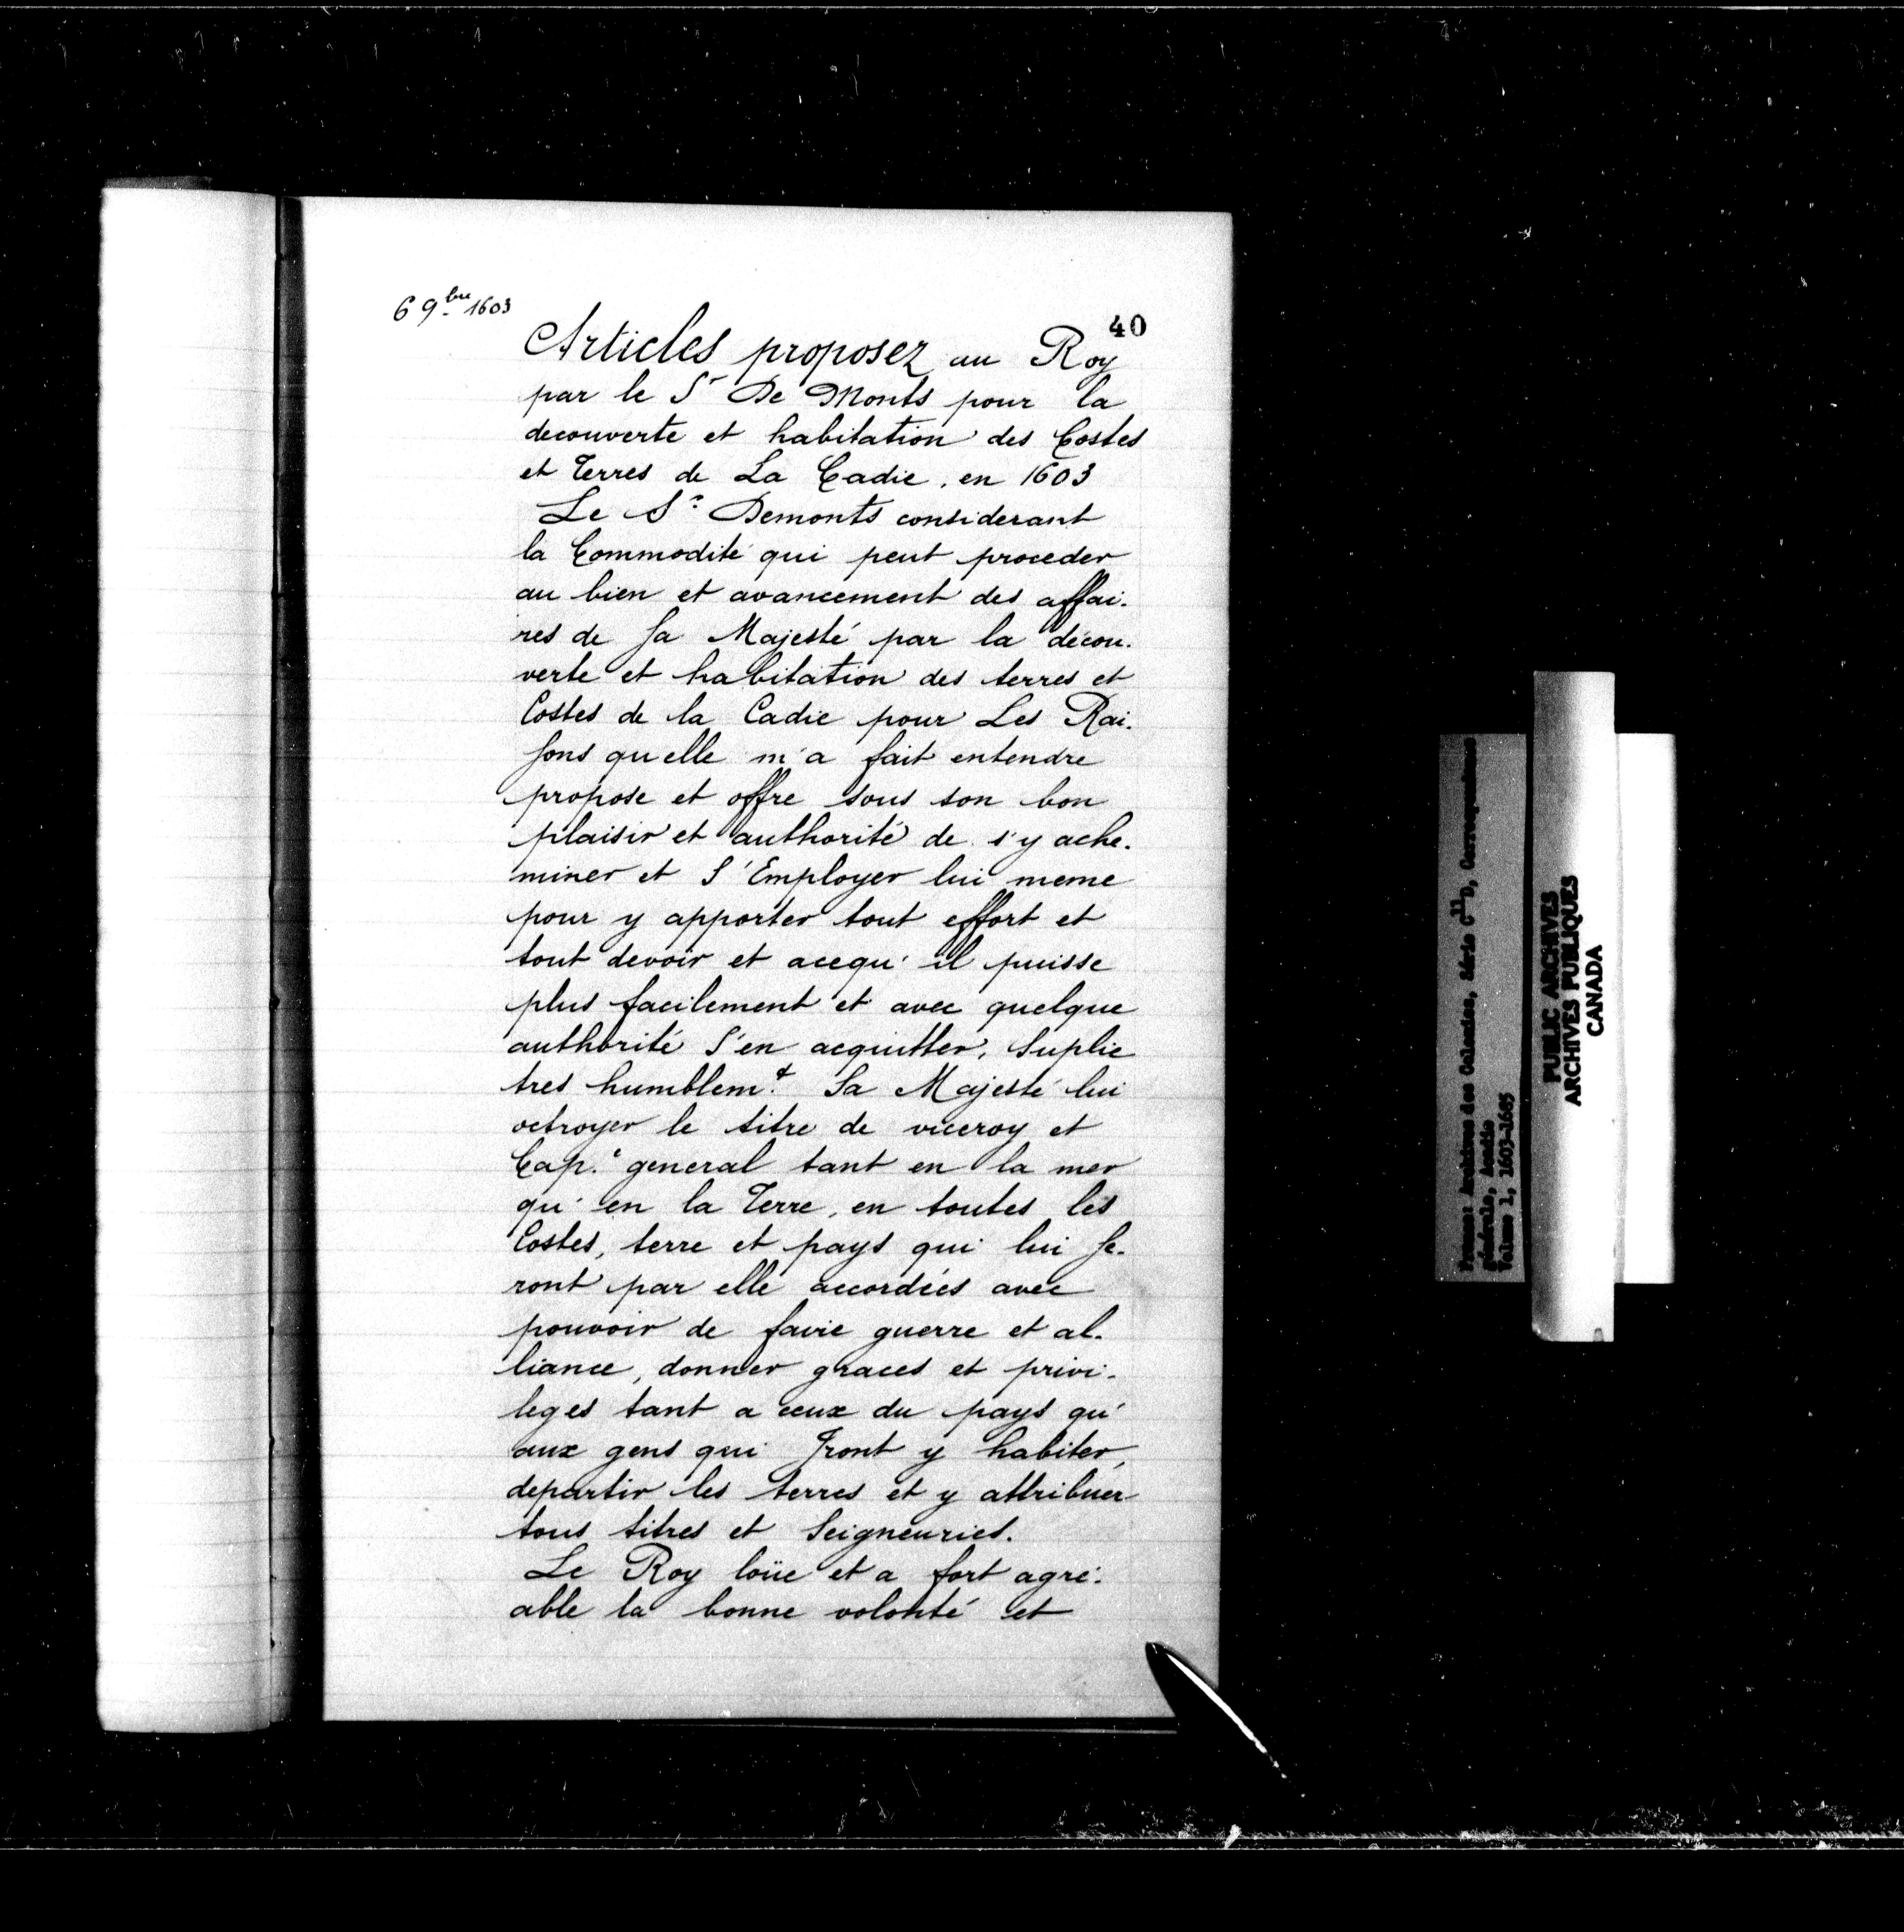 6 9.bre 1603
40
Articles proposez au Roy
par le Sr De Monts pour la
decouverte et habitation des Costes
et Terres de La Cadie, en 1603
Le Sr. Demonts considerant
la Commodité qui peut proceder
au bien et avancement des affai-
res de Sa Majesté par la décou-
verte et habitation des terres et
Costes de la Cadie pour Les Rai-
sons qu elle m'a fait entendre
propose et offre sous son bon
plaisir et authorité de s'y ache-
miner et S'Employer lui meme
pour y apporter tout effort et
tout devoir et acequ'il puisse
plus facilement et avec quelque
authorité S'en acquitter, Suplie
tres humblem.t Sa Majesté lui
octroyer le titre de viceroy et
Cap.e general tant en la mer
qu'en la Terre, en toutes les
Costes, terre et pays qui lui Se-
ront par elle accordées avec
pouvoir de faire guerre et al-
liance, donner graces et privi-
leges tant a ceux du pays qu'
aux gens qui Iront y habiter,
departir les terres et y attribuer
tous titres et Seigneuries.
Le Roy loüe et a fort agré-
able la bonne volonté et
PUBLIC ARCHIVES
ARCHIVES PUBLIQUES
CANADA
France: Archives des Colonies, Série C11D, Correspondance
générale, Acadie
Volume 1, 1603-1685